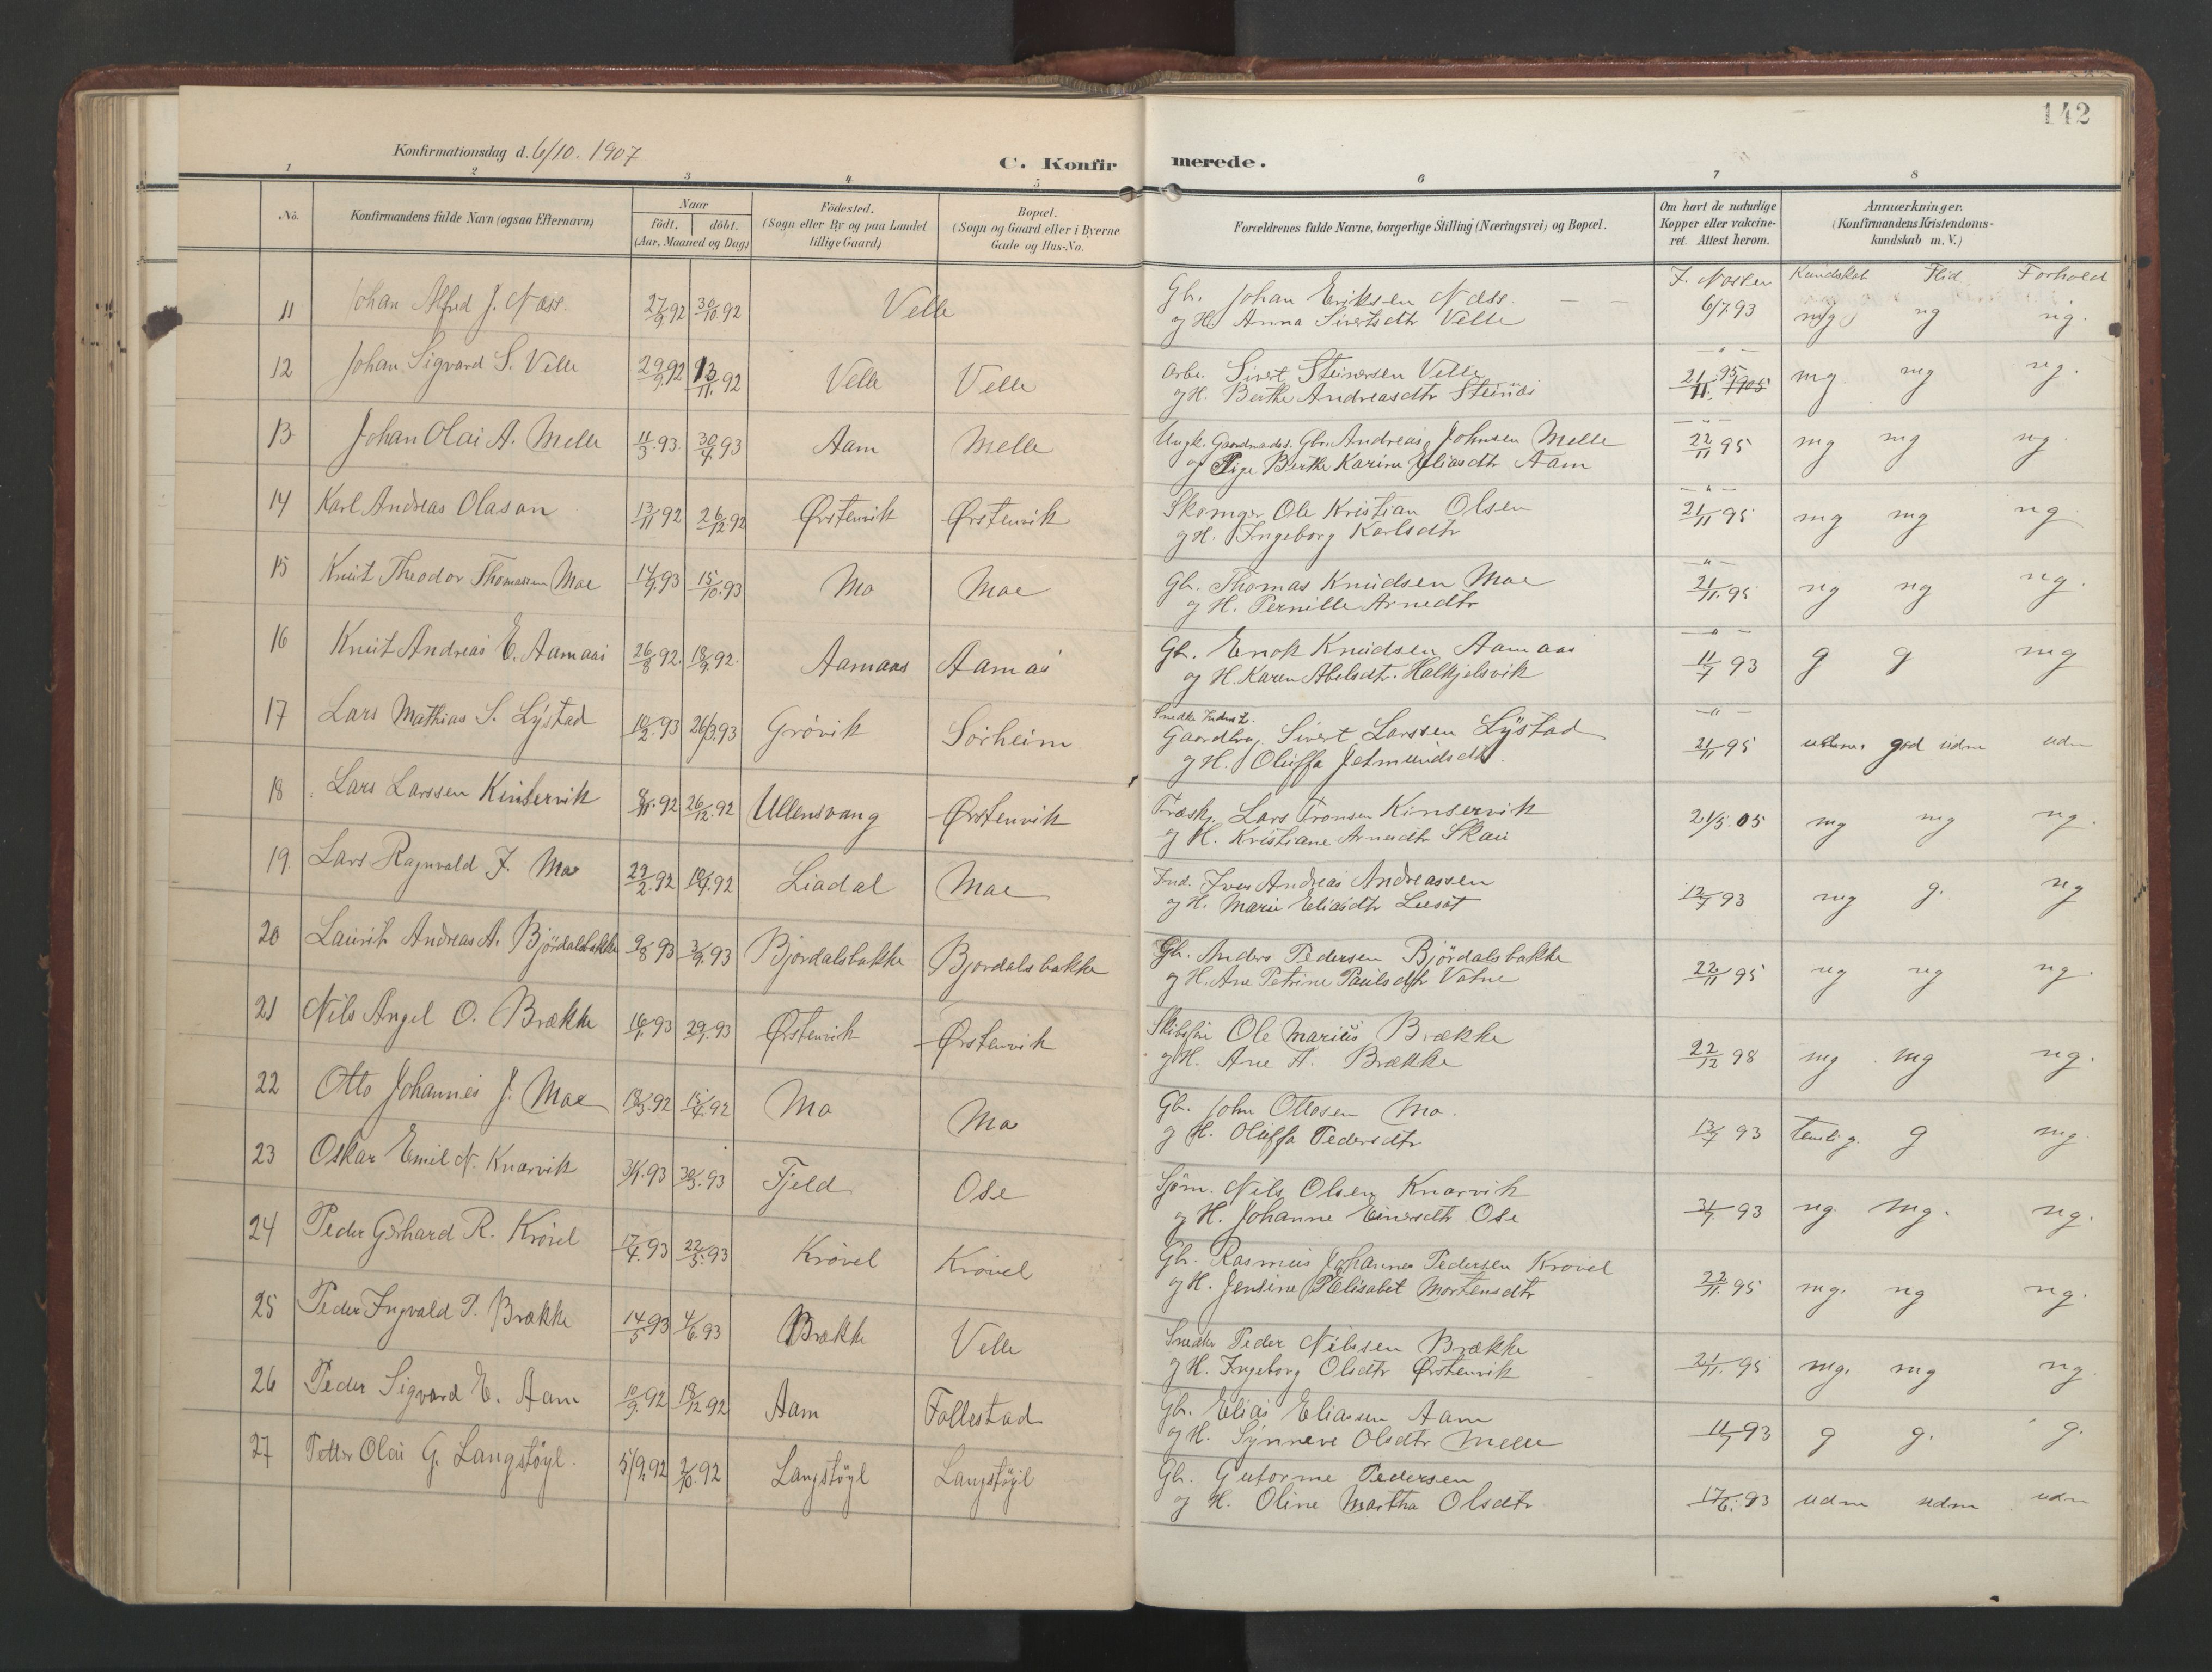 142
Konfirmationsdag d. 6/10. 1907
C. Konfirmerede.
1 2 3 4 5 6 7 8
No. Konfirmandens fulde Navn (ogsaa Efternavn) Naar født. døbt. (Aar, Maaned og Dag) Fødested. (Sogn eller By og paa Landet tillige Gaard) Bopæl. (Sogn og Gaard eller i Byerne Gade og Hus-No. Forældrenes fulde Navne, borgerlige Stilling (Næringsvei) og Bopæl. Om havt de naturlige Kopper eller vakcineret. Attest herom. Anmærkninger. (Konfirmandens Kristendomskundskab m. V.)
Kundskab Flid Forhold
11 Johan Alfred J. Næss. 27/9 92 30/10. 92 Velle Gbr. Johan Eriksen Næss.
og H. Anna Sivertsdtr Velle 6/7 93 mg ng ng.
12 Johan Sigvard S. Velle 29/9 92 13/11. 92 Velle Velle Arbe. Sivert Steinersen Velle
og H. Berthe Andreasdtr Steinnes 21/11. 95 mg. mg ng.
13 Johan Olai A. Melle 11/3. 93. 30/4 93 Aam Melle Ungk. Gaardmands. Gbr. Andreas Johnsen Melle
og Pige Berthe Karine Eliasdtr Aam 22/11 95 mg mg ng.
14 Karl Andreas Olason 13/11 92 26/12 92 Ørstenvik Ørstenvik Skomger Ole Kristian Olsen
og H. Ingeborg Karlsdtr 21/11 95 mg mg ng
15 Knut Theodor Thomassen Moe 14/9 93 15/10. 93 Mo Moe Gbr. Thomas Knudsen Moe
og H. Pernille Arnedtr 21/11. 95 ng ng ng.
16 Knut Andreas E. Aamaas 26/8 92. 18/9 92. Aamaas Aamås Gbr. Enok Knudsen Aamaas
og H. Karen Abelsdtr. Halkjelsvik 11/7 93 g g mg
17 Lars Mathias S. Lystad 10/2. 93 26/3. 93 Grøvik Sørheim Gaardbr. Sivert Larssen Lystad
og H. Oluffa Jetmundsdtr. 21/11 95 god udm udm
18 Lars Larssen Kinservik 8/11. 92 26/12. 92 Ullensvang Ørstenvik Træskj. Lars Tronsen Kinservik
og H. Kristiane Arnedtr Skare 21/5. 05 mg mg ng.
19 Lars Ragnvald J. Moe 29/2. 92 18/4. 92 Liadal Moe Ind. Iver Andreas Andreassen
og H. Marie Eliasdtr 12/7 93 mg g. ng
20 Laurits Andreas A. Bjørdalsbakke 9/8 93 3/9. 93 Bjørdalsbakke Bjørdalsbakke Gbr. Anders Pedersen Bjørdalsbakke
og H. Ane Petrine Paulsdtr Vatne 22/11 95 ng ng ng.
21 Nils Angel O. Brække 16/1. 93 29/1. 93 Ørstenvik Ørstenvik Ole Marius Brække
og H. Ane A. Brække 22/12 98 mg mg ng.
22 Otto Johannes J. Moe 18/3. 92 18/4. 92 Mo Mo Gbr. John Ottosen Mo.
og H. Oluffa Pedersdtr 13/7 93 temlig. g mg.
23 Oskar Emil N. Knarvik 3/1. 93 30/3. 93 Fjeld Ose Sjøm. Nils Olsen Knarvik
og H. Johanne Einersdtr Ose 31/7 93 ng. mg. ng.
24 Peder Gerhard R. Krøvel 17/4. 93 22/5. 93 Krøvel Krøvel Gbr. Rasmus Johannes Pedersen Krøvel
og H. Jensine Elisabet Mortensdtr 22/11. 95 mg. ng ng.
25 Peder Ingvald P. Brække 14/5. 93 4/6 93 Brække Velle Snedker Peder Nilssen Brække
og H. Ingeborg Olsdtr Ørstenvik 21/11. 95 mg. mg ng
26 Peder Sigvard E. Aam 10/9. 92 18/12 92 Aam Follestad Gbr. Elias Eliassen Aam
og H. Synneve Olsdtr Melle 11/7 93 g g. g.
27 Petter Olai G. Langstøyl. 5/9. 92 2/10. 92 Langstøyl Langstøyl Gbr. Gutorme Pedersen
og H. Oline Martha Olsdtr 17/6. 93 udm udm udm